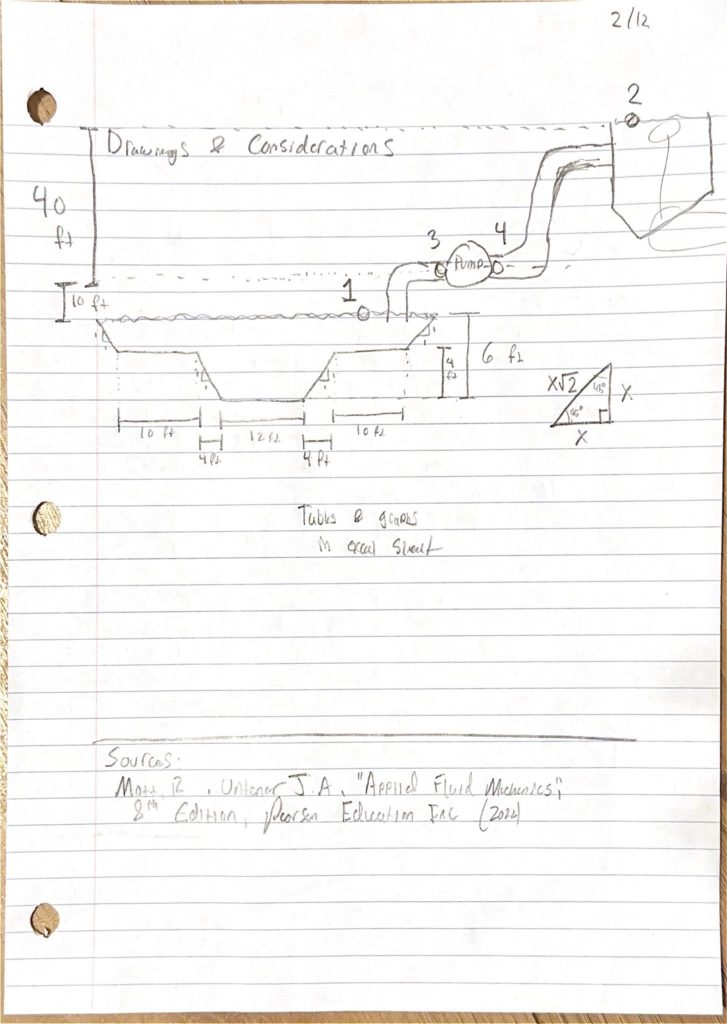 2/12
2
Drawings & Considerations
40
ft
3
4
PUMP
10 ft
1
6 ft
4
ft
x√2
45°
x
45°
x
10 ft
12 ft
10 ft
4 ft
4 ft
Tables & graphs
in excel sheet
Sources:
Mott, R., Untener J.A., "Applied Fluid Mechanics",
8th Edition, Pearson Education Inc (2022)